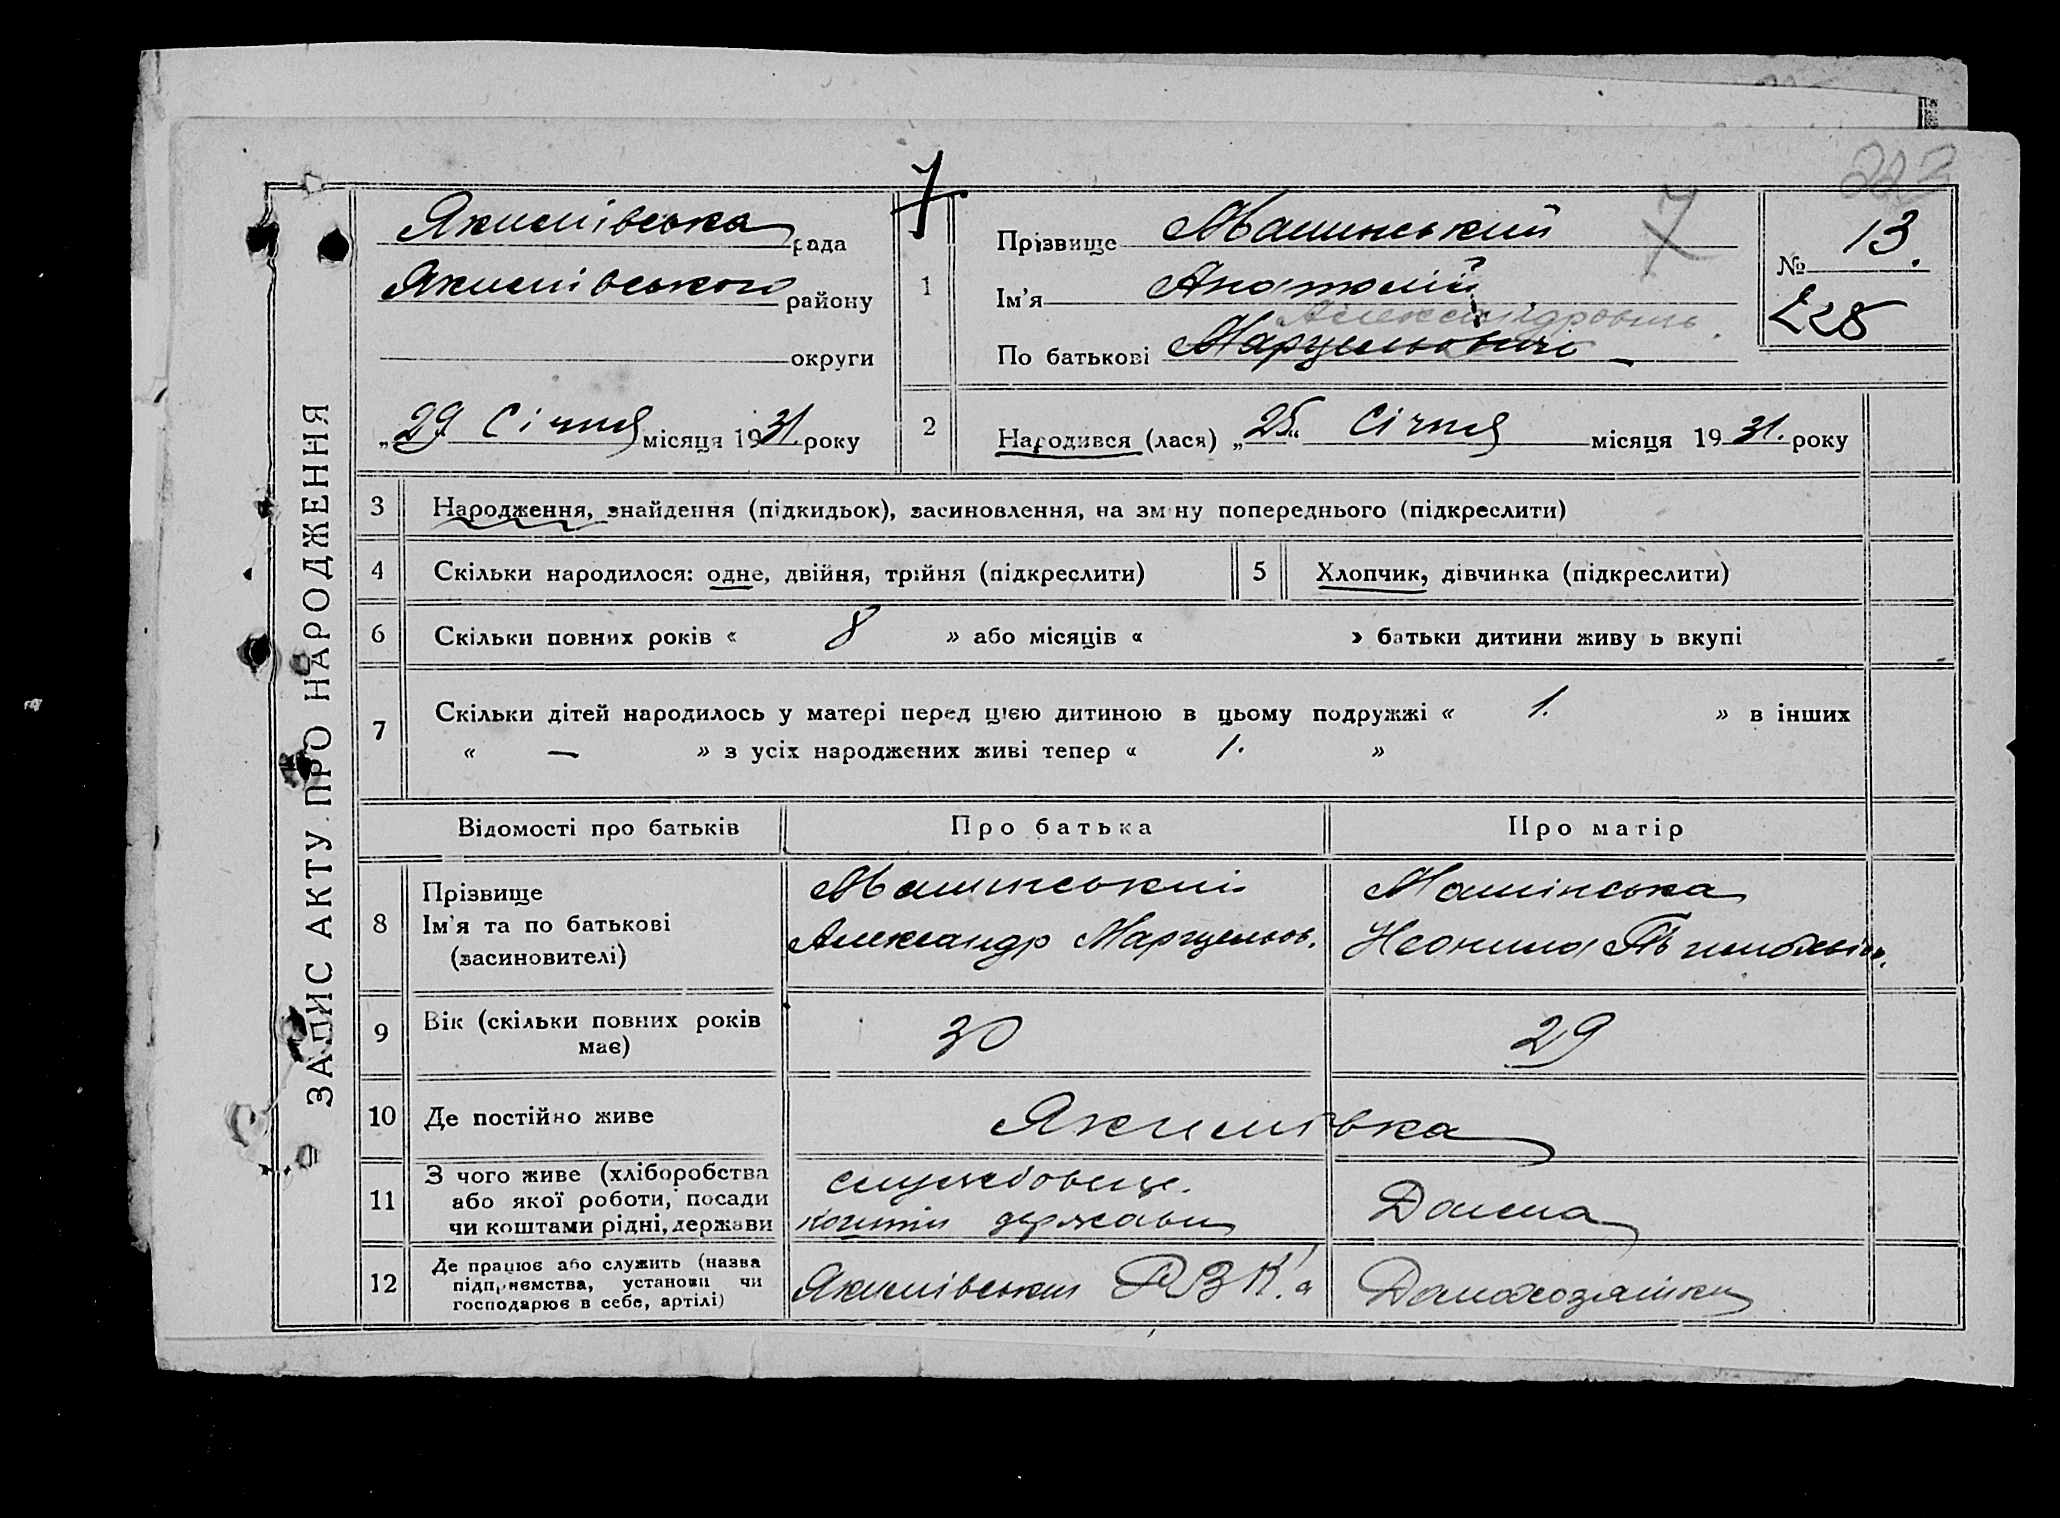 222
7
ЗАПИС АКТУ ПРО НАРОДЖЕННЯ
Якимівська рада
Якимівського району
округи
„29 Січня місяця 1931 року
1
Прізвище Машинський
Ім'я Анатолій
Александровичь
По батькові Марцельовичь
7
№ 13.
228
2
Народився (лася) „25“ Січня місяця 1931. року
3
Народження, знайдення (підкидьок), засиновлення, на зміну попереднього (підкреслити)
4
Скільки народилося: одне, двійня, трійня (підкреслити)
5
Хлопчик, дівчинка (підкреслити)
6
Скільки повних років « 8 » або місяців « » батьки дитини живу ь вкупі
7
Скільки дітей народилось у матері перед цією дитиною в цьому подружжі « 1. » в інших
« — » з усіх народжених живі тепер « 1. »
Відомості про батьків
Про батька
Про матір
8
Прізвище
Ім'я та по батькові
(засиновителі)
Машинський
Александр Марцельов.
Машінська
Неонила
9
Вік (скільки повних років
має)
30
29
10
Де постійно живе
Якимівка
11
З чого живе (хліборобства
або якої роботи, посади
чи коштами рідні, держави
службовець.
кошти держави
Дома
12
Де працює або служить (назва
підприємства, установи чи
господарює в себе, артілі)
Якимівський РВК.
Домохозяйки